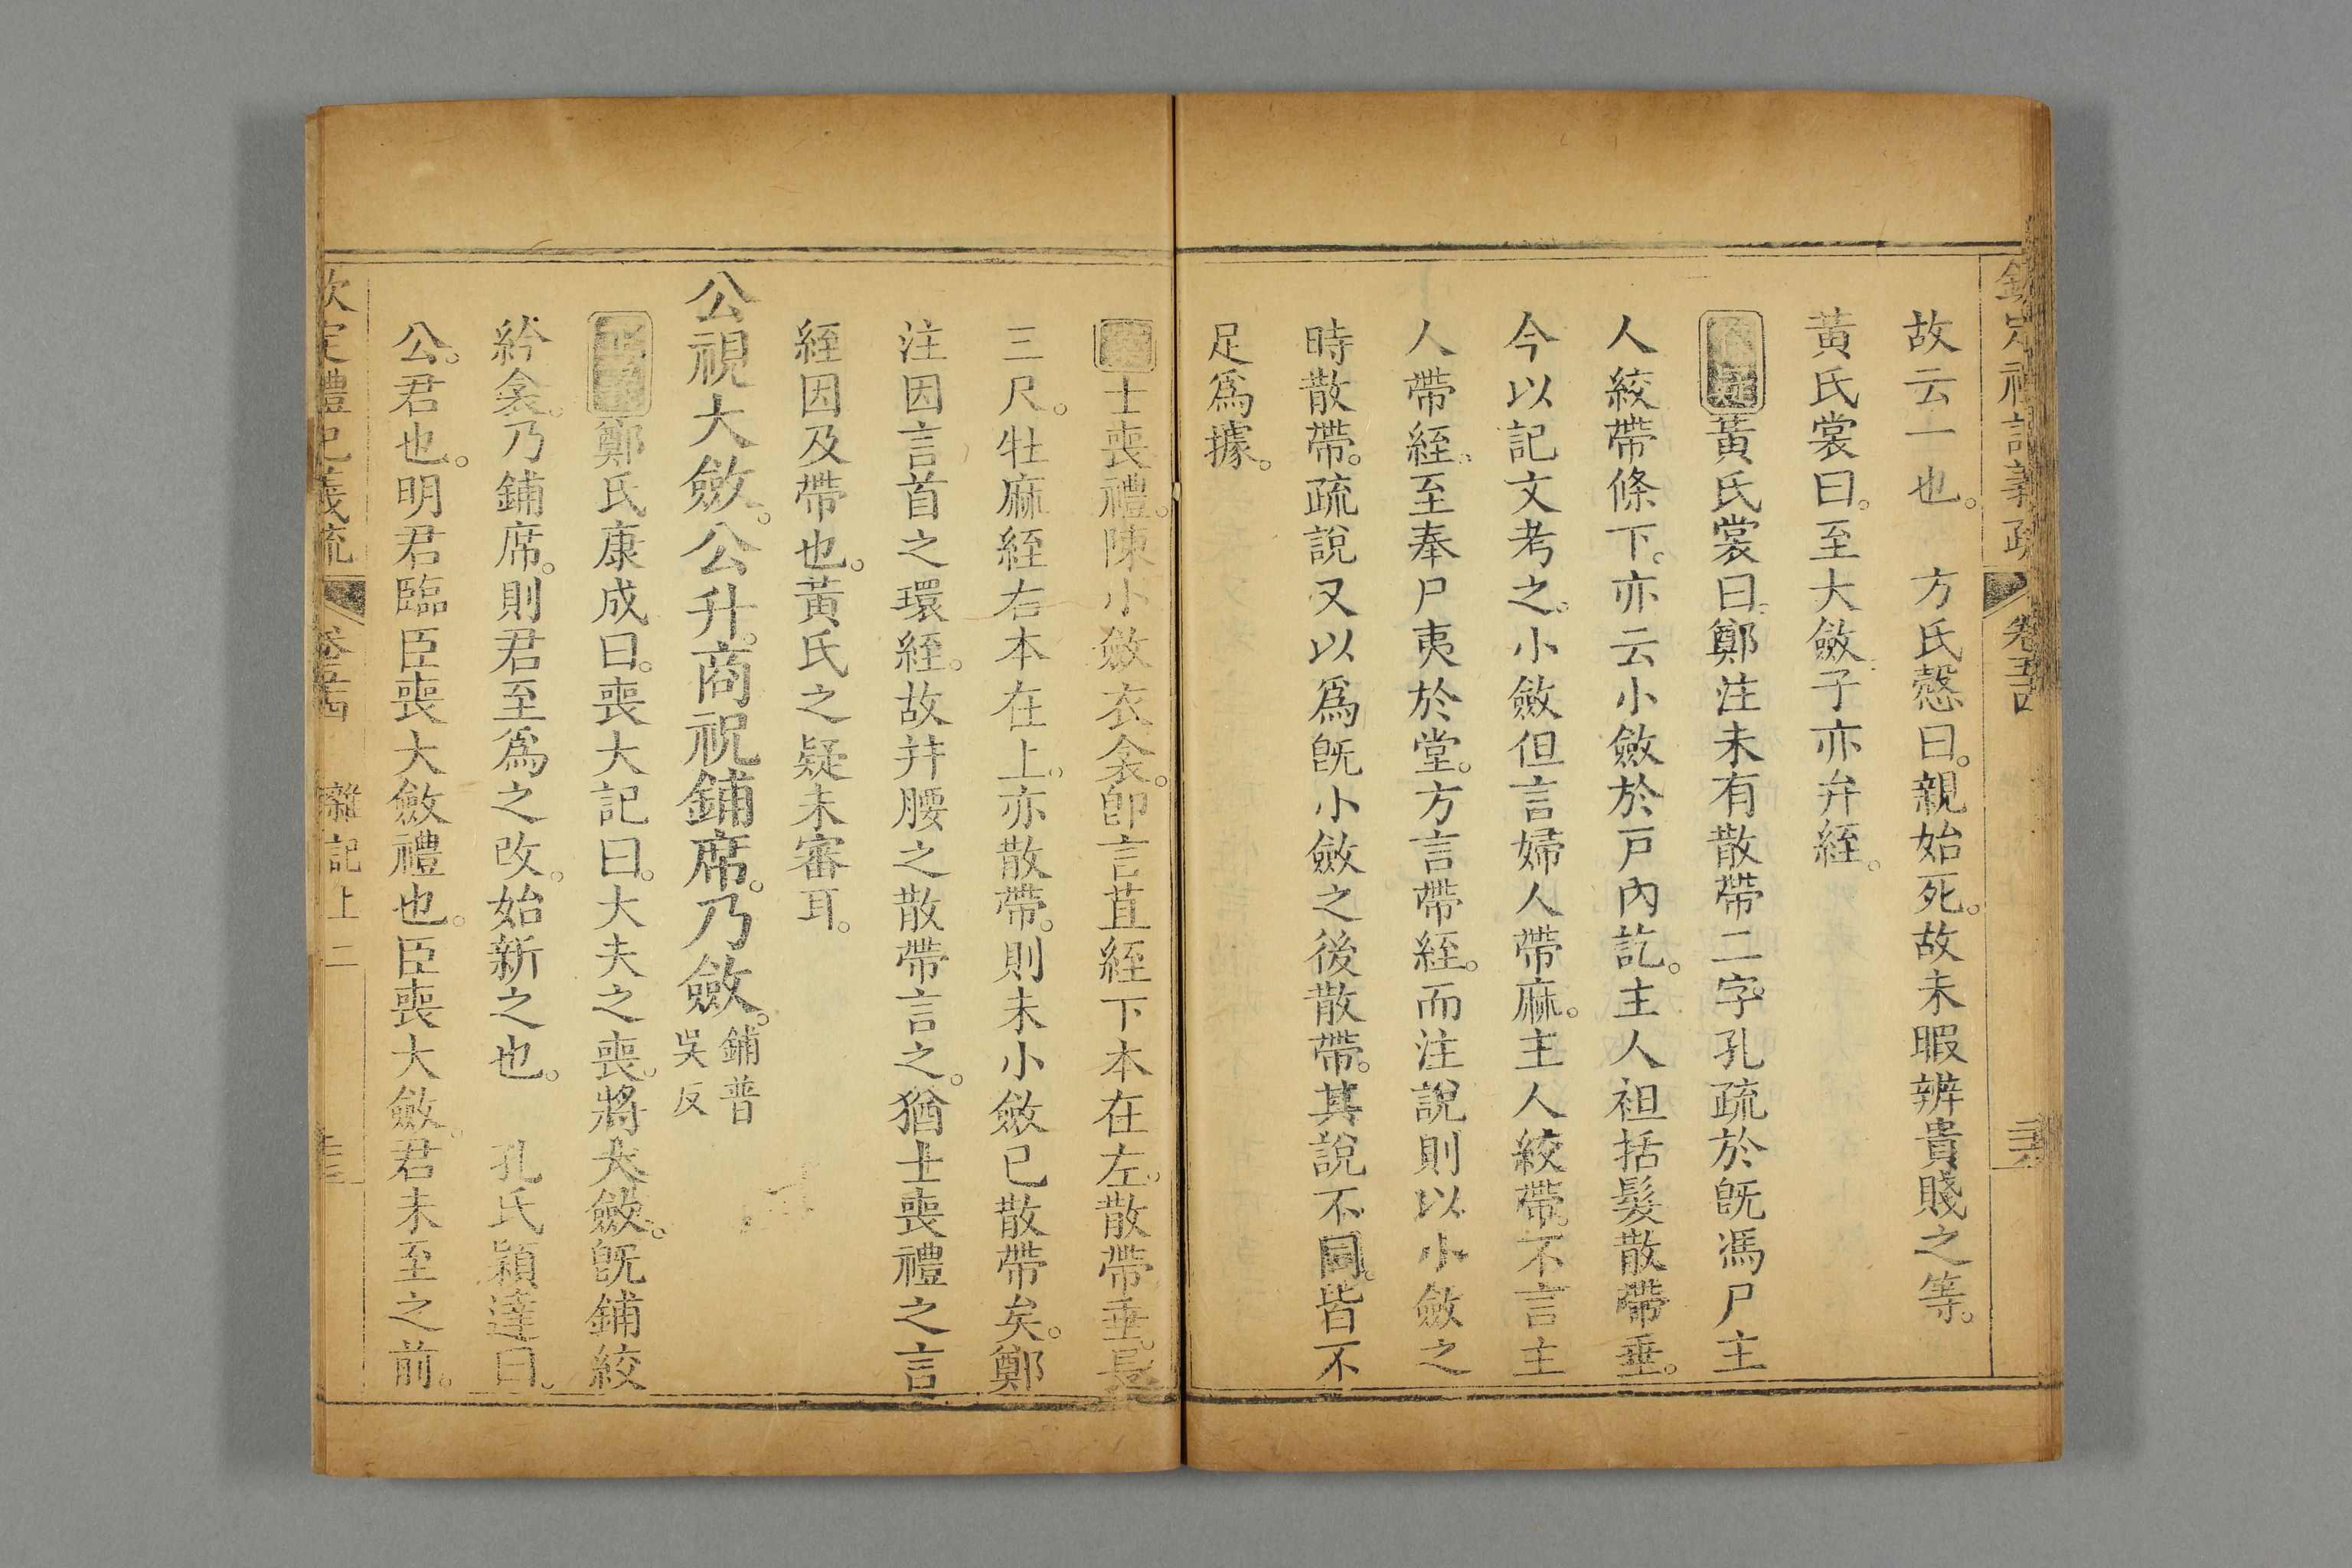 故云一也。　方氏慤曰。親始死。故未暇辨貴賤之等。
黃氏裳曰。至大斂。子亦弁絰。
黃氏裳曰。鄭注未有散帶二字。孔疏於旣馮尸主
人絞帶條下。亦云小斂於戸內訖。主人袒括髮散帶垂。
今以記文考之。小斂但言婦人帶麻。主人絞帶。不言主
人帶絰。至奉尸夷於堂。方言帶絰。而注說則以小斂之
時散帶。疏說又以爲旣小斂之後散帶。其說不同。皆不
足爲據。
士喪禮。陳小斂衣衾。卽言苴絰下本在左。散帶垂。長
三尺。牡麻絰右本在上。亦散帶。則未小斂已散帶矣。鄭
注因言首之環絰。故幷腰之散帶言之。猶士喪禮之言
絰因及帶也。黃氏之疑未審耳。
公視大斂。公升。商祝鋪席。乃斂。鋪普吳反
鄭氏康成曰。喪大記曰。大夫之喪。將大斂。旣鋪絞
紟衾。乃鋪席。則君至爲之改。始新之也。　孔氏穎達曰。
公。君也。明君臨臣喪大斂禮也。臣喪大斂。君未至之前。
欽定禮記義疏　雜記上二